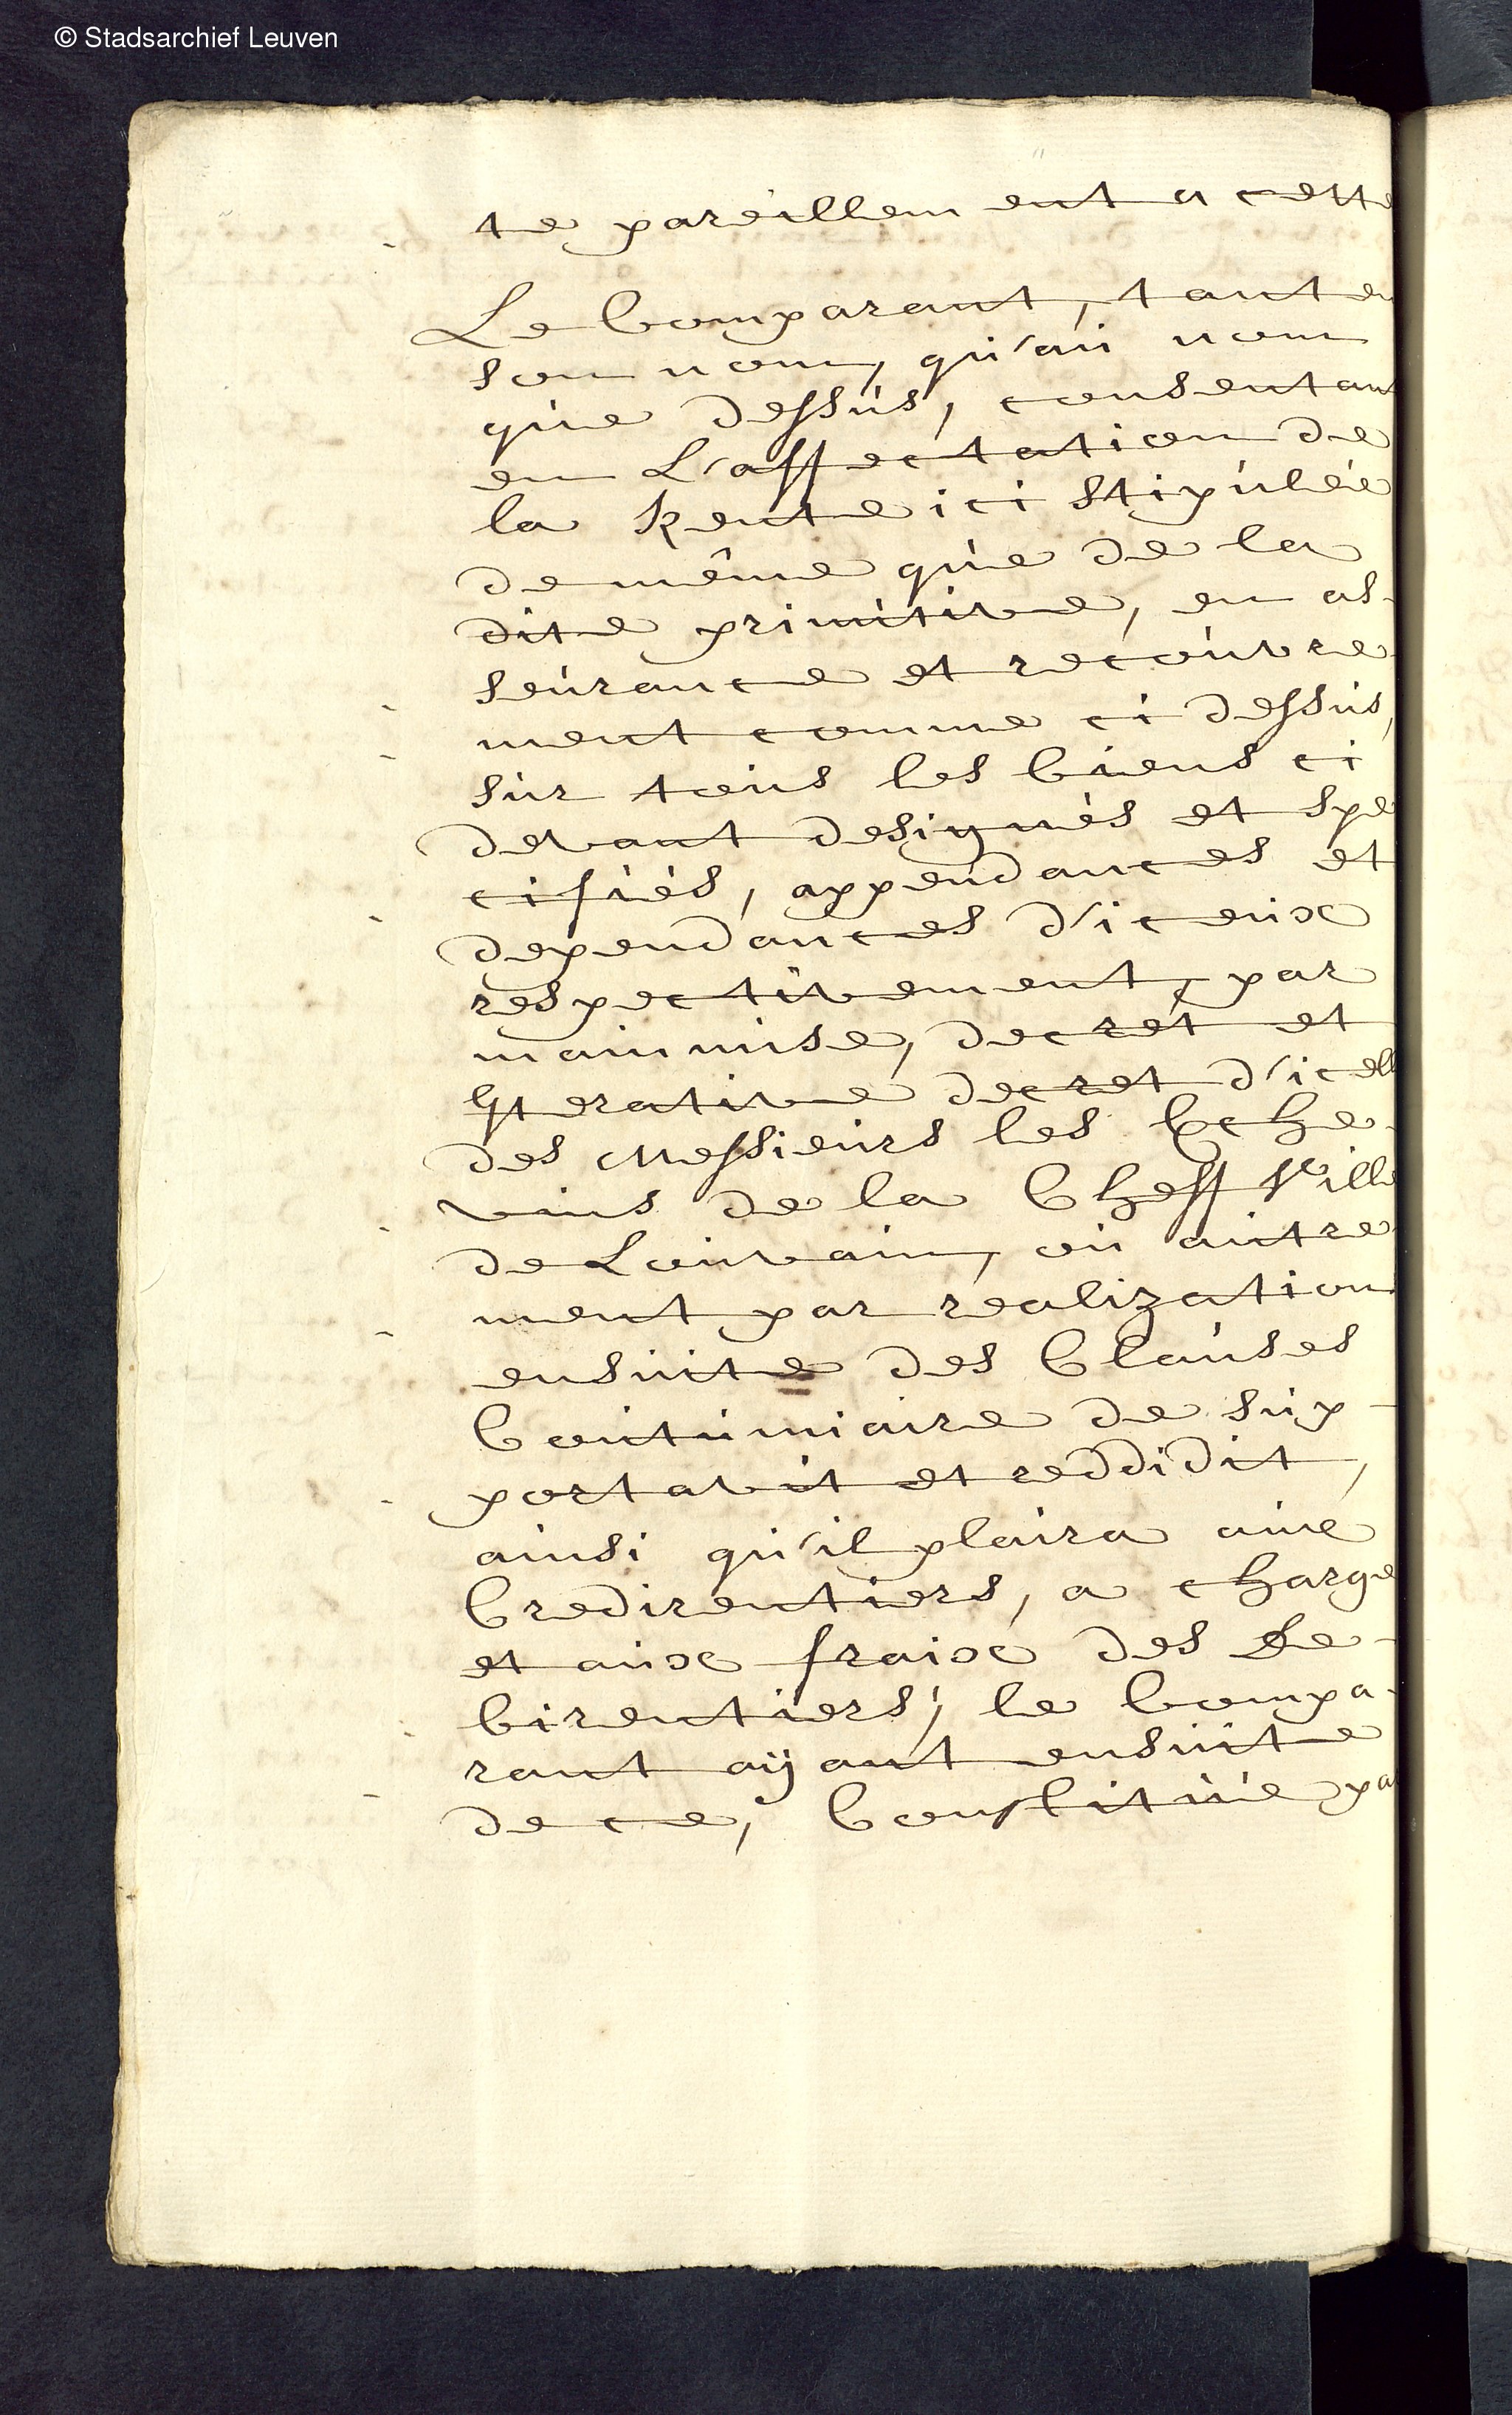 © Stadsarchief Leuven
te pareillement a cette
Le Comparant, tant en
son nom, qu'au nom
que dessus, consentant
en L'affectation de
la Rente ici stipulée
de même que de la
dite primitive, en as-
seurance et recouvre-
ment comme ci dessus,
sur tous les biens ci
devant designés et spe
cifiés, appendances et
dependances d'iceux
respectivement, par
mainmise, decret et
Iterative decret d'icell
des Messieurs les Eche-
vins de la Cheff Ville
de Louvain, ou autre
ment par realization
ensuite des Clauses
Coutumiaire de sup-
portavit et reddidit,
ainsi qu'il plaira aux
Credirentiers, a charge
et aux fraix des De-
birentiers, le Compa-
rant aÿant ensuite
de ce, Constitué pa